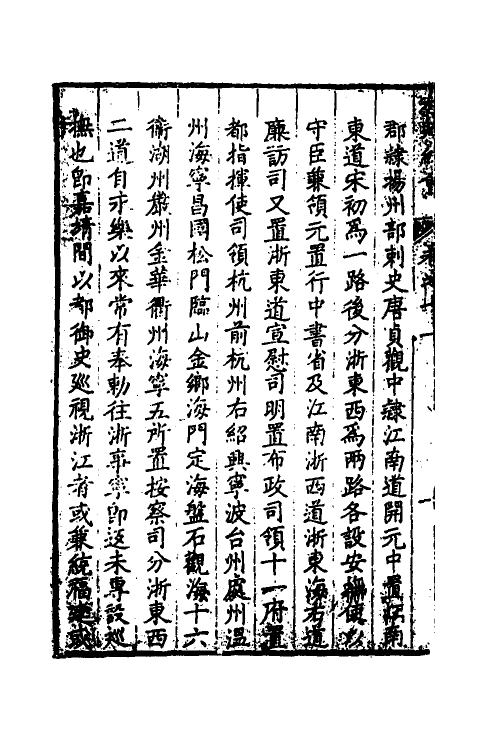 郡隸揚州部刺史唐貞觀中隸江南道開元中置江南
東道宋初爲一路後分浙東西爲兩路各設安撫使以
守臣兼領元置行中書省及江南浙西道浙東海右道
廉訪司又置浙東道宣慰司明置布政司領十一府置
都指揮使司領杭州前杭州右紹興寧波台州處州溫
州海寧昌國松門臨山金鄉海門定海盤石觀海十六
衞湖州嚴州金華衢州海寧五所置按察司分浙東西
二道自永樂以來常有奉勅往浙事寧卽返未專設巡
撫也卽嘉靖間以都御史巡視浙江者或兼統福建或